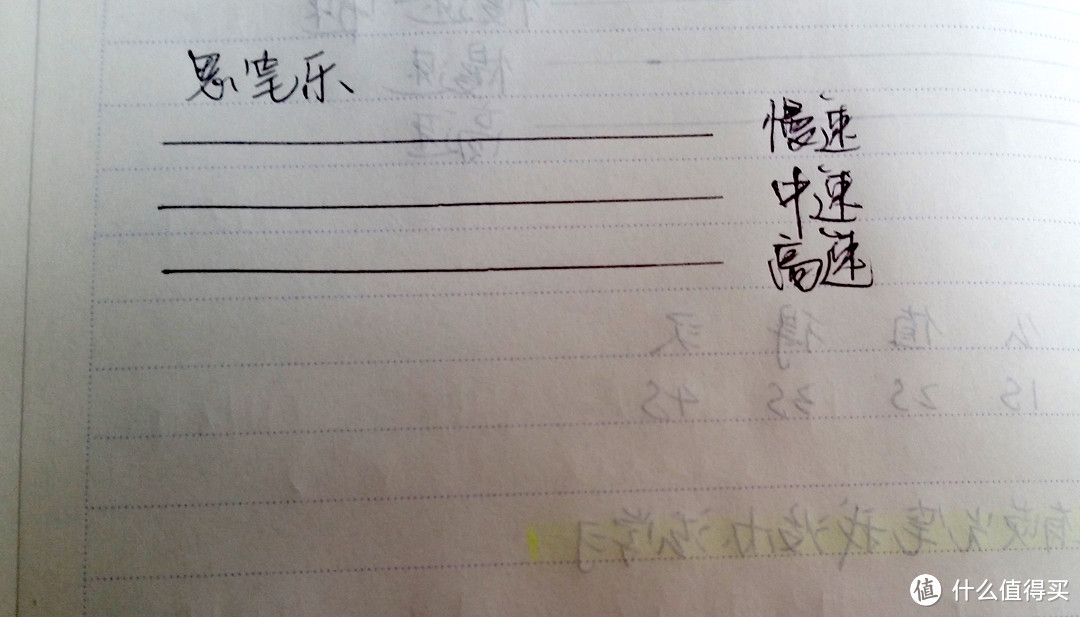 思笔乐
慢速
中速
高速
值 什么值得买